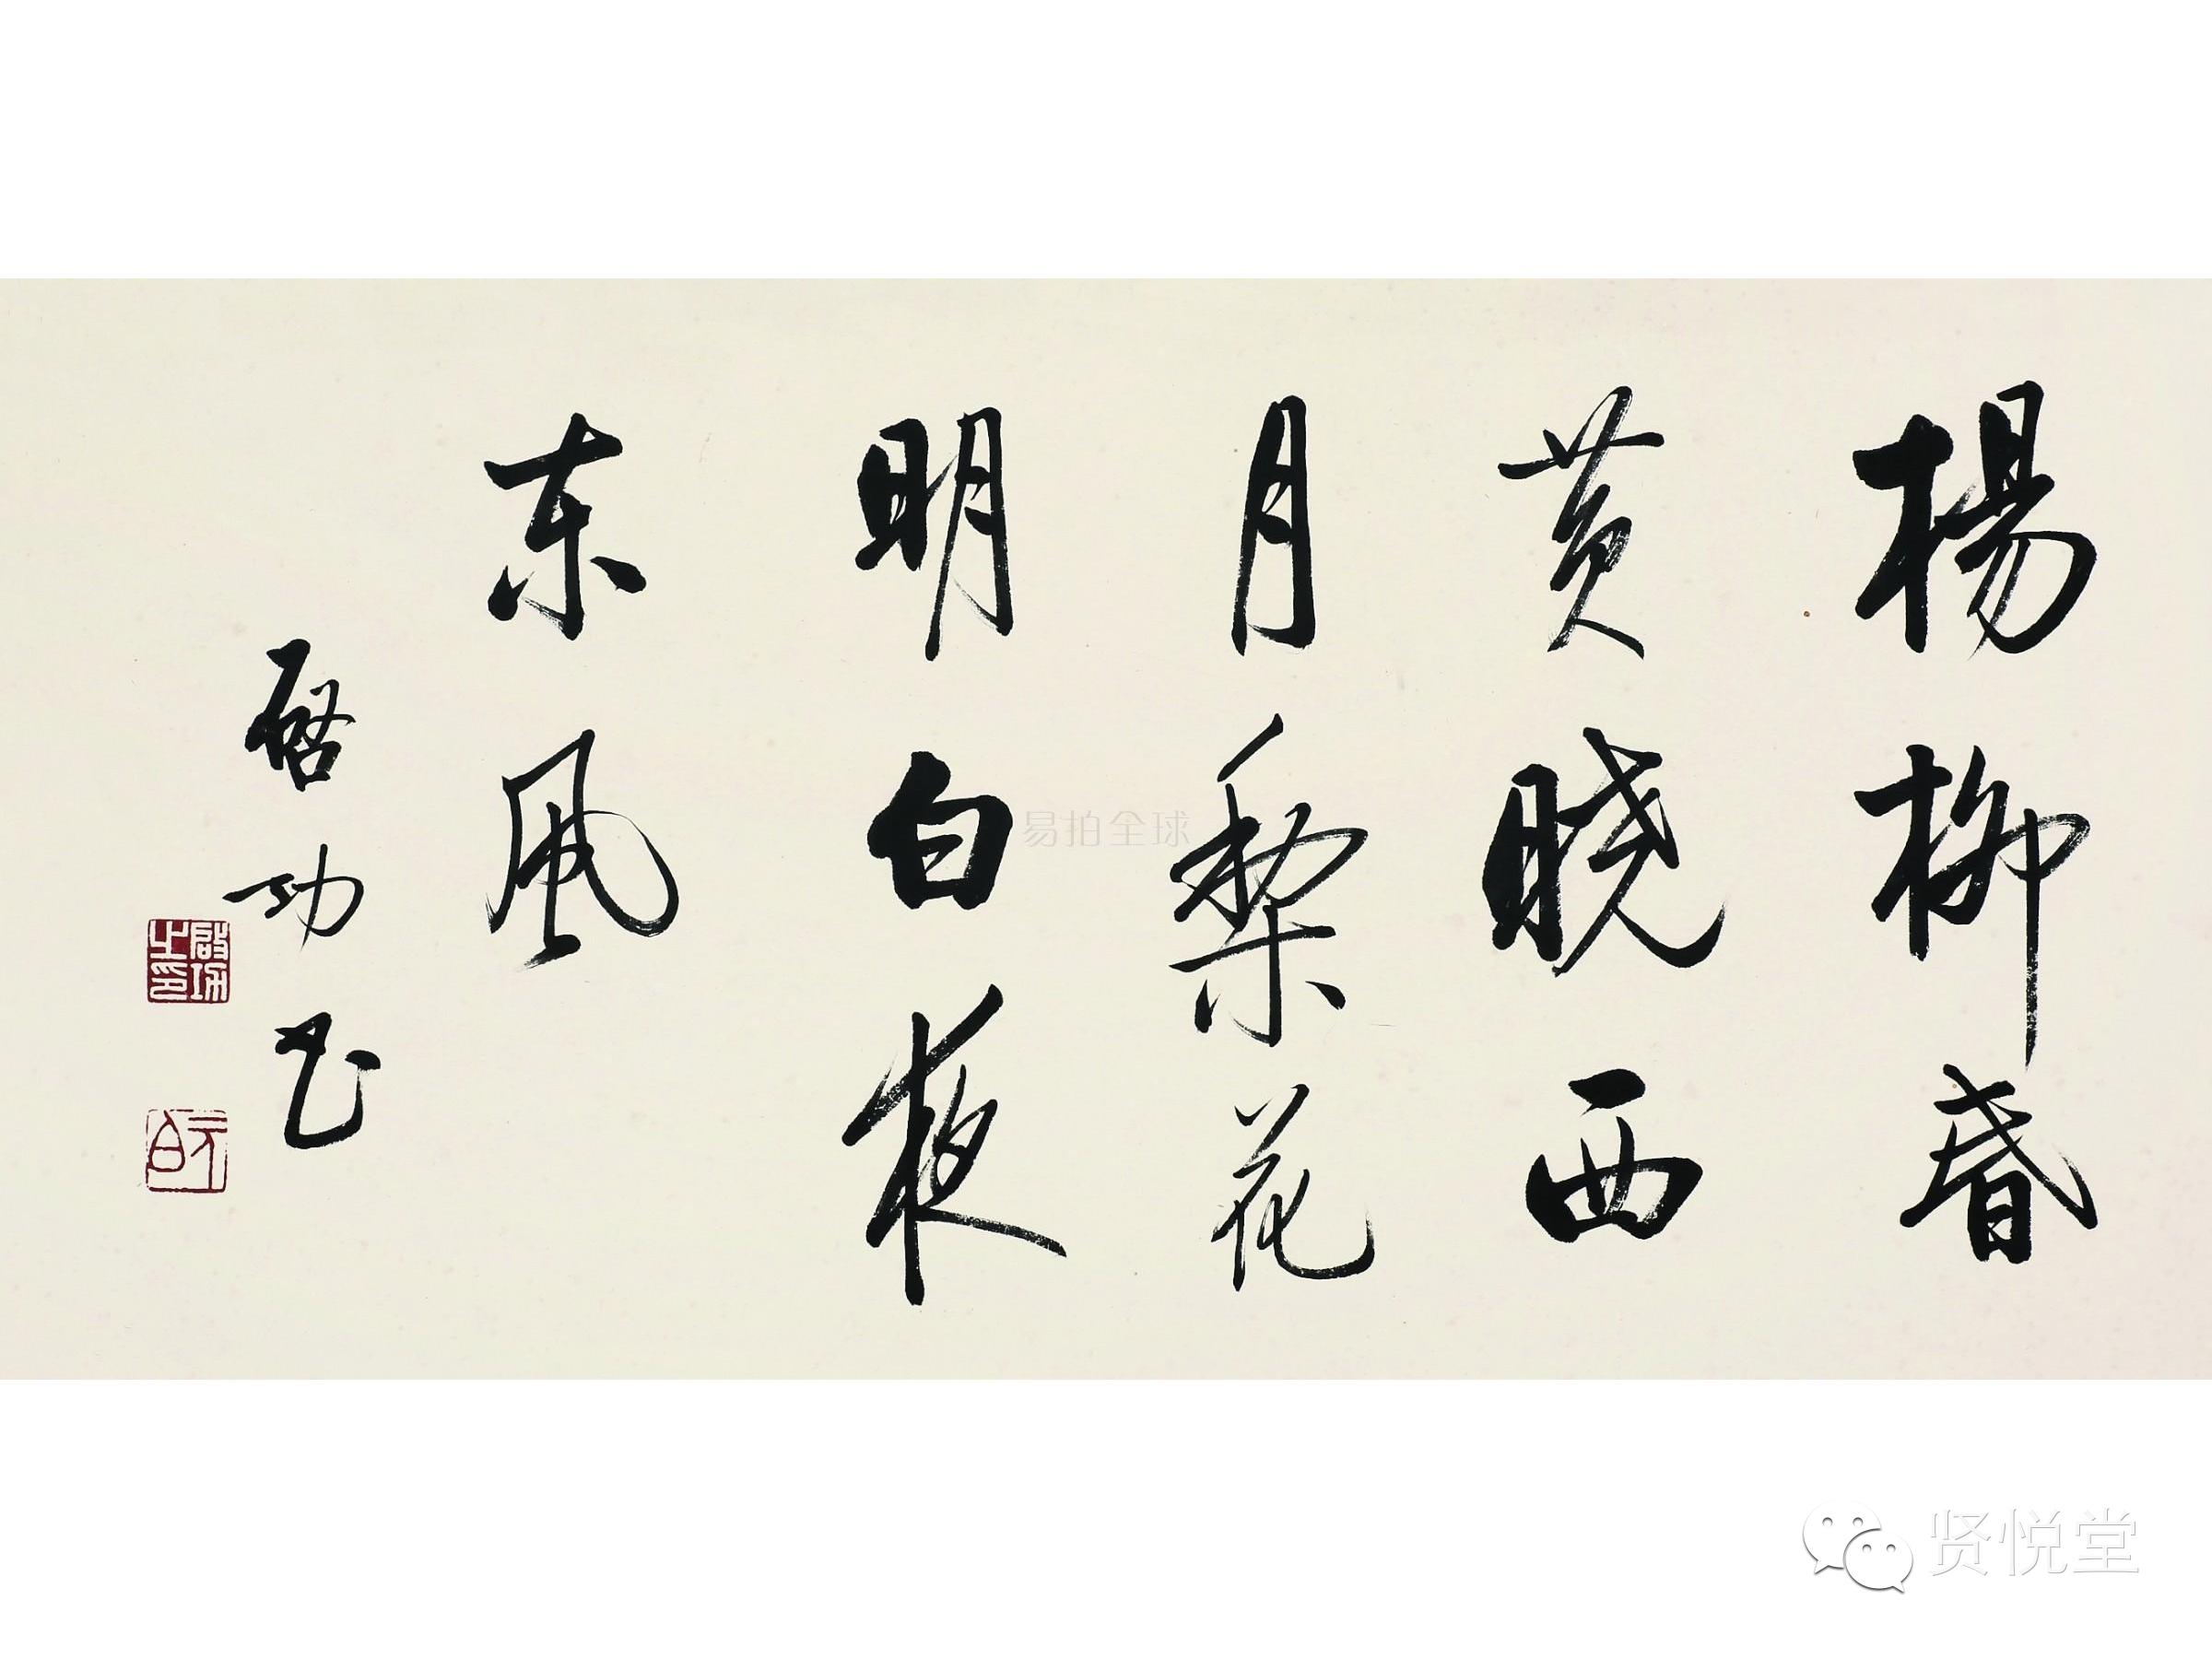 楊柳昏
黄晓西
月梨花
明白夜
东风
启功书
启功之印
元白
易拍全球
贤悦堂